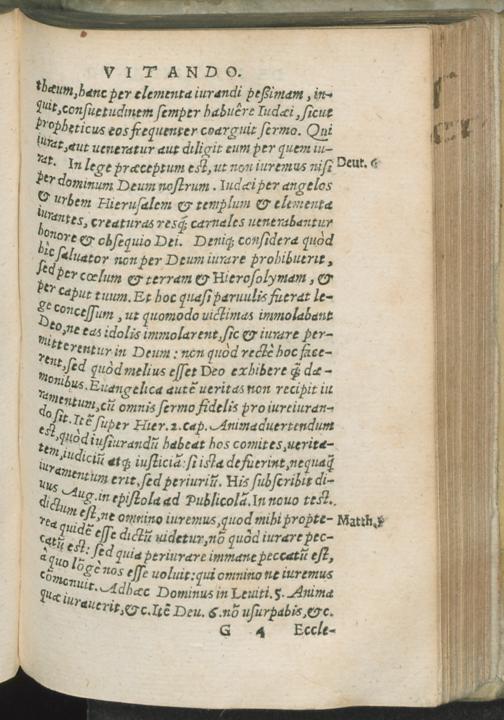 VITANDO.
thæum, hanc per elementa iurandi peßimam, in-
quit, consuetudinem semper habuêre Iudæi, sicut
propheticus eos frequenter coarguit sermo. Qui
iurat, aut veneratur aut diligit eum per quem iu-
rat. In lege præceptum est, ut non iuremus nisi Deut. 6
per dominum Deum nostrum. Iudæi per angelos
& urbem Hierusalem & templum & elementa
iurantes, creaturas resq́; carnales uenerabantur
honore & obsequio Dei. Deniq; considera quòd
hîc saluator non per Deum iurare prohibuerit,
sed per cœlum & terram & Hierosolymam, &
per caput tuum. Et hoc quasi paruulis fuerat le-
ge concessum, ut quomodo uictimas immolabant
Deo, ne eas idolis immolarent, sic & iurare per-
mitterentur in Deum: non quòd rectè hoc face-
rent, sed quòd melius esset Deo exhibere q̃ dæ-
monibus. Euangelica autē ueritas non recipit iu
ramentum, cũ omnis sermo fidelis pro iureiuran-
do sit. Itẽ super Hier. 2. cap. Animaduertendum
est, quòd iusiurandũ habeat hos comites, uerita-
tem, iudiciũ atq; iusticiã: si ista defuerint, nequaq̃
iuramentum erit, sed periuriũ. His subscribit di-
uus Aug. in epistola ad Publicolã. In nouo test.
dictum est, ne omnino iuremus, quod mihi propte- Matth.
rea quidẽ esse dictũ uidetur, nõ quòd iurare pec-
catũ est: sed quia periurare immane peccatũ est,
à quo lõgè nos esse uoluit: qui omnino ne iuremus
cõmonuit. Adhæc Dominus in Leuiti. 5. Anima
quæ iurauerit, &c. Itẽ Deu. 6. nõ usurpabis, &c.
G 4 Eccle-